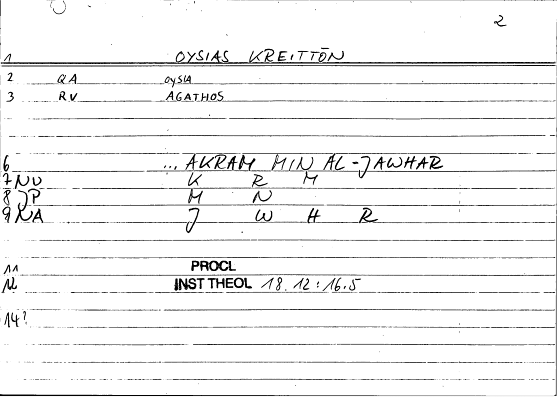 2
1 OYSIAS KREITTŌN
2 QA OYSIA
3 RV AGATHOS
6 ... AKRAM MIN AL-JAWHAR
7 NU K R M
8 JP M N
9 NA J W H R
11 PROCL
12 INST THEOL 18.12:16.5
14?